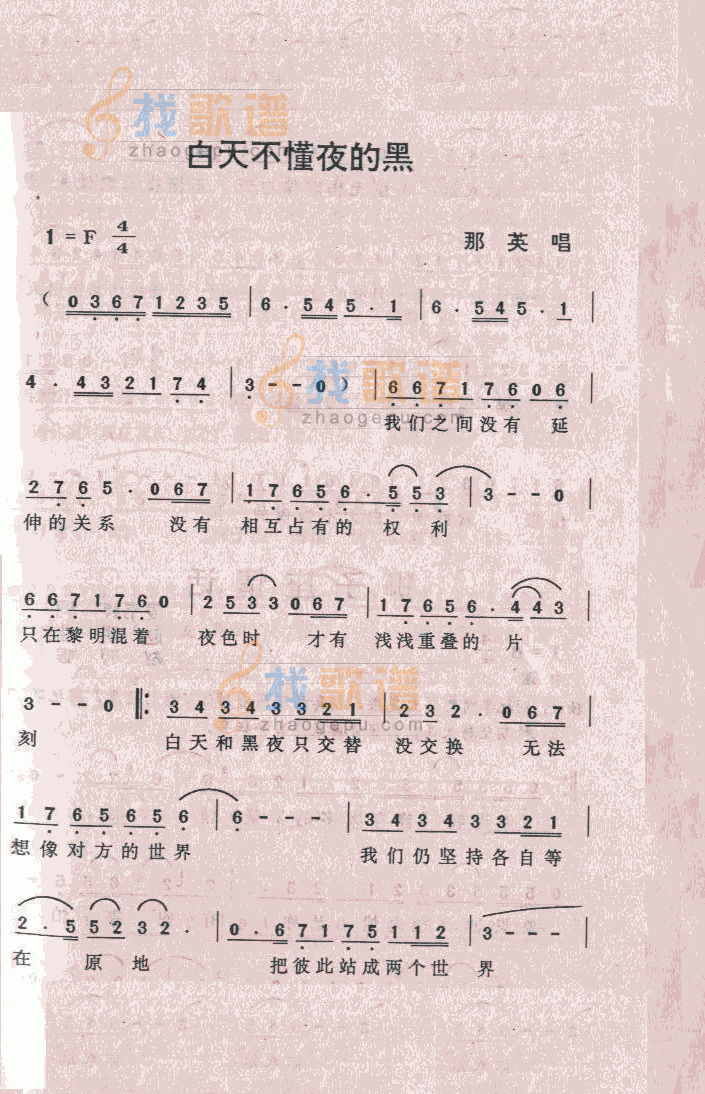 找歌谱
zhaogepu.com
白天不懂夜的黑
1 = F 4/4
那 英 唱
( 0 3 6 7 1 2 3 5 | 6 · 5 4 5 · 1 | 6 · 5 4 5 · 1 |
4 · 4 3 2 1 7 4 | 3 - - 0 ) | 6 6 7 1 7 6 0 6 |
找歌谱
zhaogepu.com
我们之间没有 延
2 7 6 5 · 0 6 7 | 1 7 6 5 6 · 5 5 3 | 3 - - 0 |
伸的关系 没有 相互占有的 权 利
6 6 7 1 7 6 0 | 2 5 3 3 0 6 7 | 1 7 6 5 6 · 4 4 3 |
只在黎明混着 夜色时 才有 浅浅重叠的 片
找歌谱
zhaogepu.com
3 - - 0 ‖: 3 4 3 4 3 3 2 1 | 2 3 2 · 0 6 7 |
刻 白天和黑夜只交替 没交换 无法
1 7 6 5 6 5 6 | 6 - - - | 3 4 3 4 3 3 2 1 |
想像对方的世界 我们仍坚持各自等
2 · 5 5 2 3 2 · | 0 · 6 7 1 7 5 1 1 2 | 3 - - - |
在 原 地 把彼此站成两个世 界